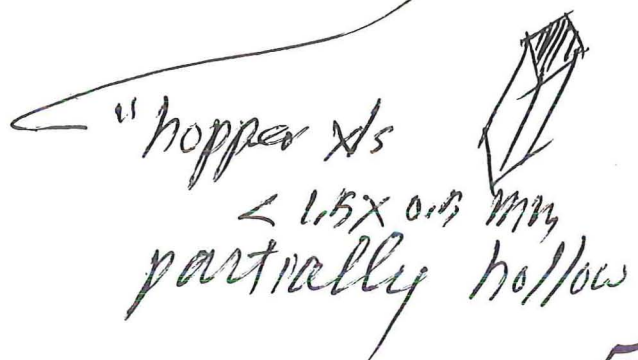 "hopper xls
< 1.5 x 0.5 mm
partially hollow